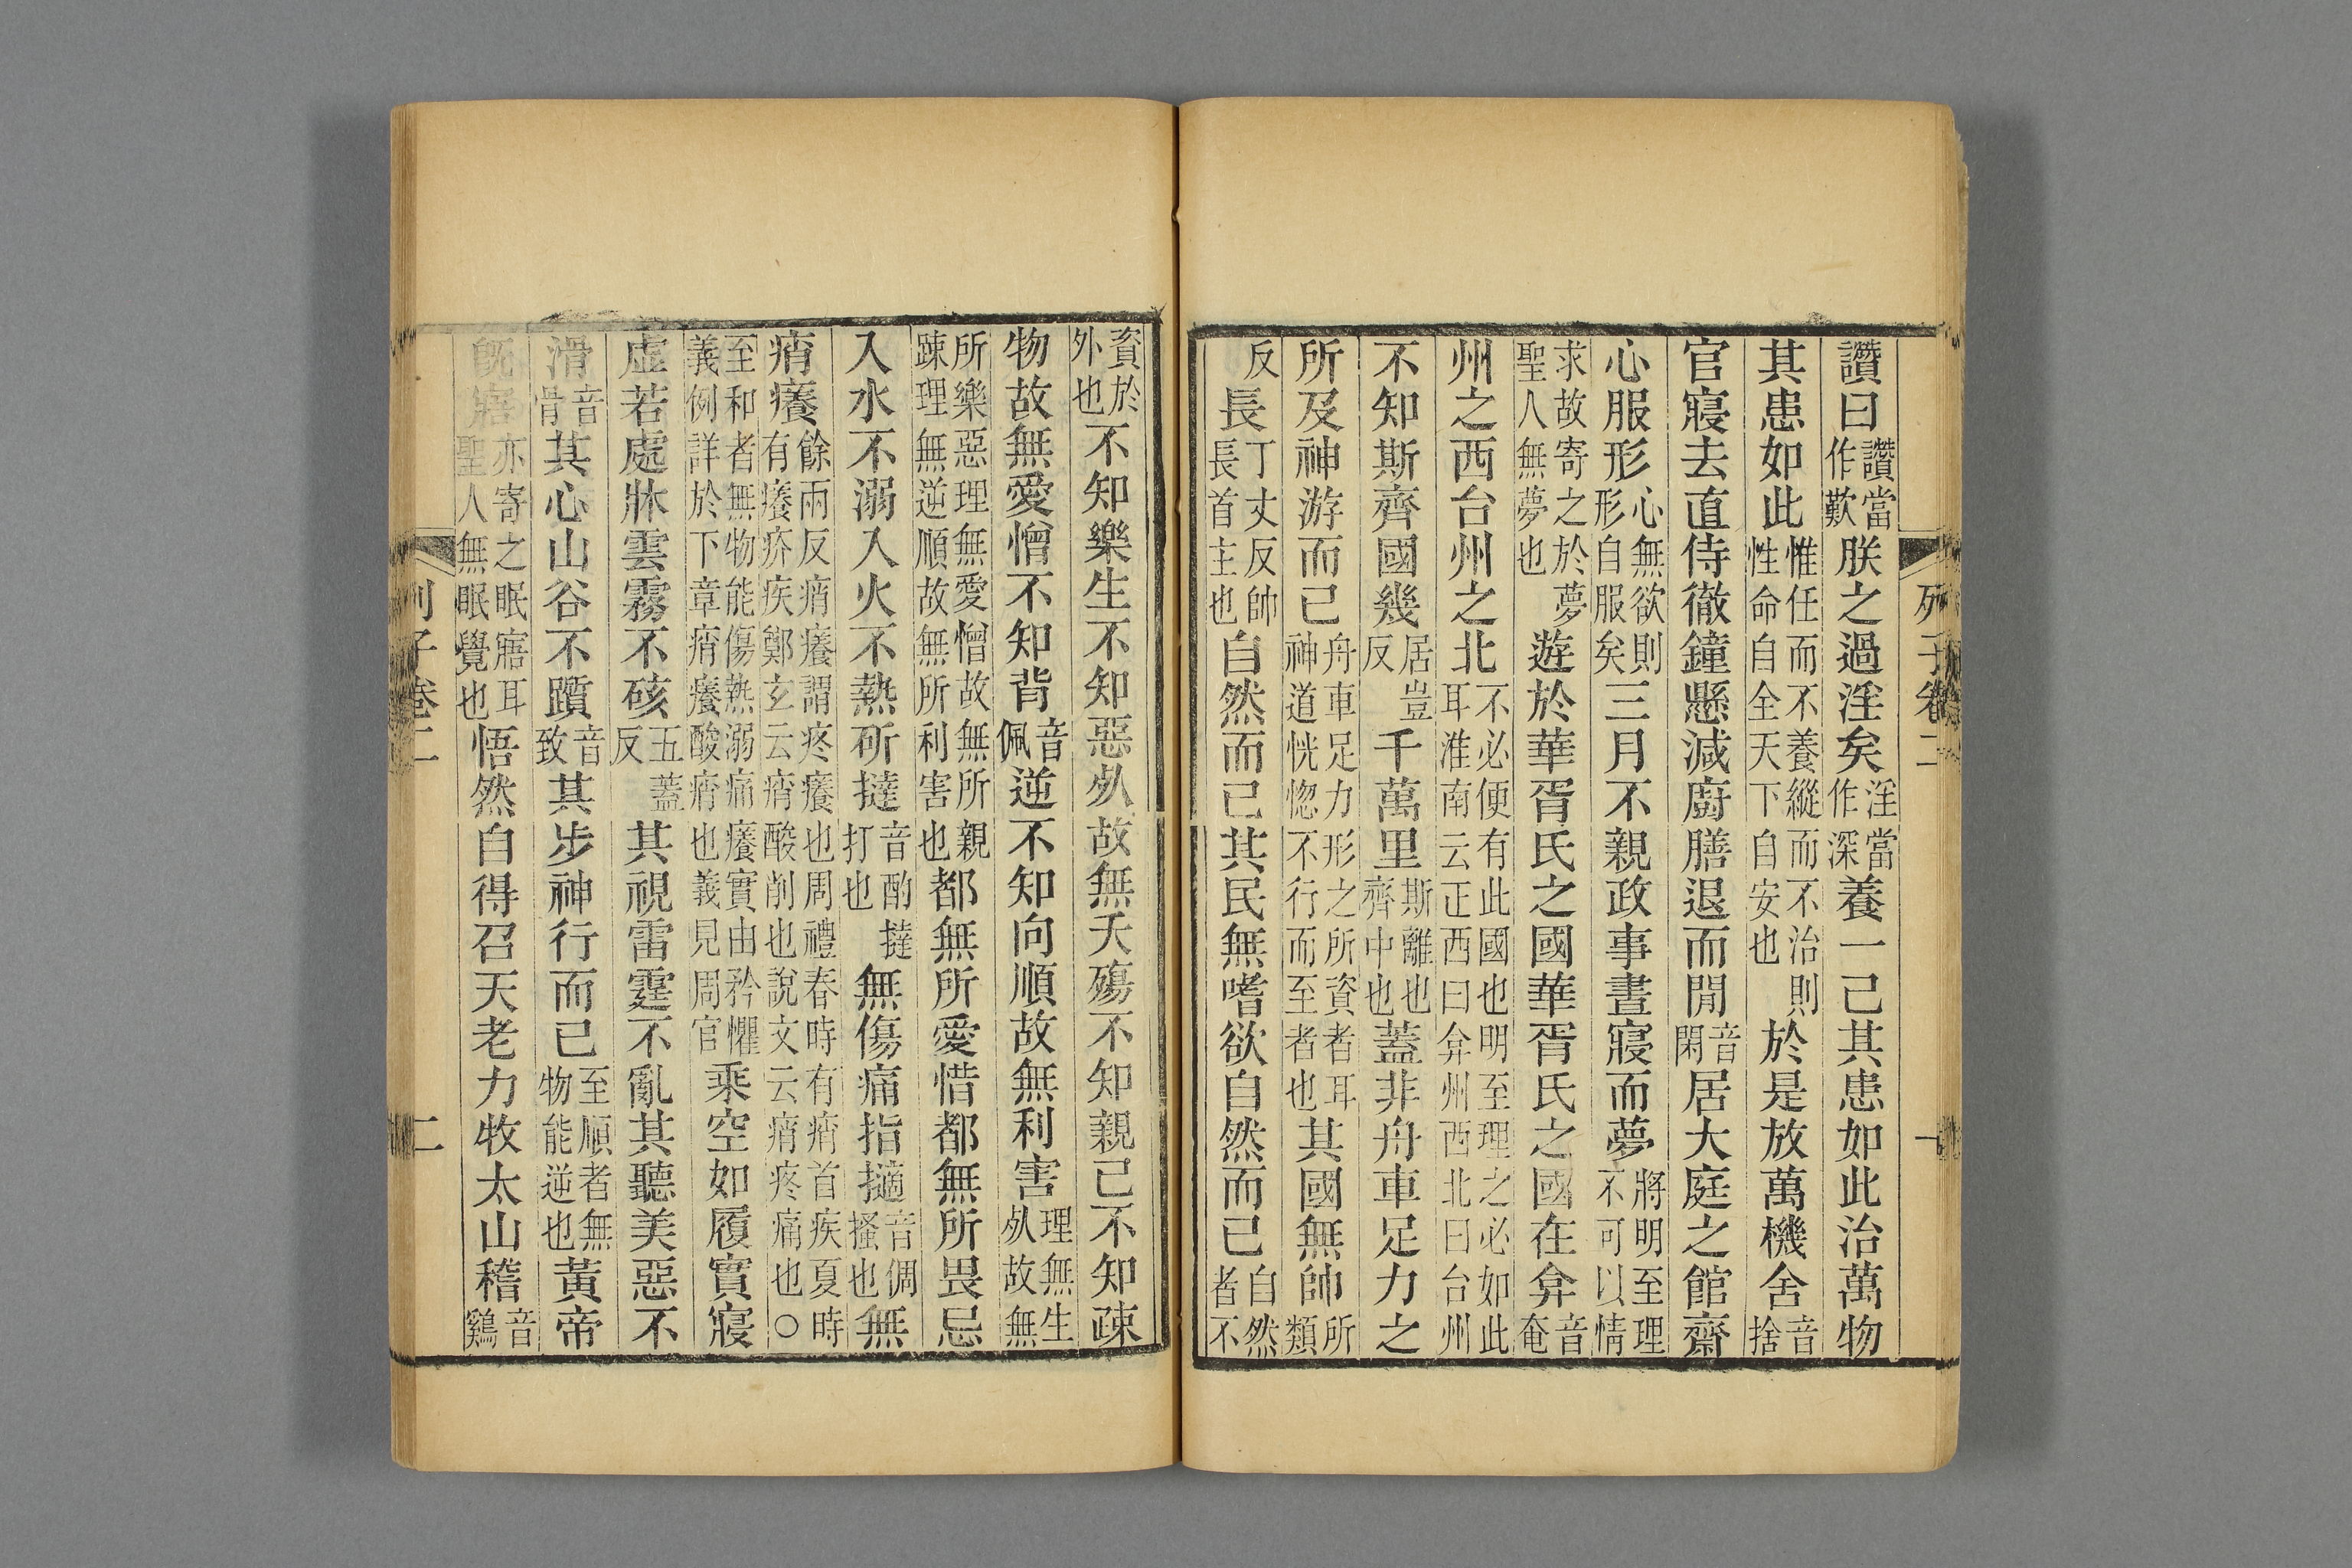 列子卷二 一
讚曰讚當作歎朕之過淫矣淫當作深養一己其患如此治萬物
其患如此惟任而不養縱而不治則性命自全天下自安也於是放萬機舍音捨
官寢去直侍徹鐘懸減廚膳退而閒音閑居大庭之館齋
心服形心無欲則形自服矣三月不親政事晝寢而夢將明至理不可以情
求故寄之於夢聖人無夢也遊於華胥氏之國華胥氏之國在弇音奄
州之西台州之北不必便有此國也明至理之必如此耳淮南云正西曰弇州西北曰台州
不知斯齊國幾居豈反千萬里斯離也齊中也蓋非舟車足力之
所及神游而已舟車足力形之所資者耳神道恍惚不行而至者也其國無帥所類
反長丁丈反帥長首主也自然而已其民無嗜欲自然而已自然者不
資於外也不知樂生不知惡死故無夭殤不知親己不知疎
物故無愛憎不知背音佩逆不知向順故無利害理無生死故無
所樂惡理無愛憎故無所親疎理無逆順故無所利害也都無所愛惜都無所畏忌
入水不溺入火不熱斫撻音酌撻打也無傷痛指擿音倜搔也無
痟癢餘兩反痟癢謂疼癢也周禮春時有痟首疾夏時有癢疥疾鄭玄云痟酸削也說文云痟疼痛也〇
至和者無物能傷熱溺痛癢實由矜懼義例詳於下章痟癢酸痟也義見周官乘空如履實寢
虛若處牀雲霧不硋五蓋反其視雷霆不亂其聽美惡不
滑音骨其心山谷不躓音致其步神行而已至順者無物能逆也黃帝
既寤亦寄之眠寤耳聖人無眠覺也悟然自得召天老力牧太山稽音鷄
列子卷二 二